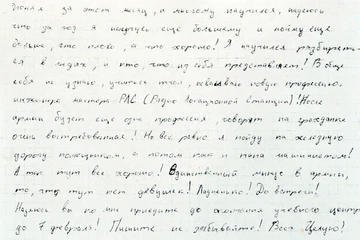 жизня за этот месяц, я многому научился, надеюсь
что за год я научусь ещё большему и пойму еще
больше, что плохо, а что хорошо! Я научился разбират-
ся в людях, и кто, что из себя представляет! Вобще
себя не узнаю, учиться начал, осваиваю новую профессию.
инженера мастера РЛС (Радио Локационной Станции)! После
армии будет еще одна профессия говорят на гражданке
очень востребованная! Но все равно я пойду на железную
дорогу помощником, а потом как и папа машинистом!
А так тут все хорошо! Единственный минус в армии,
то, что тут нет девушек! Ладненько! До встречи!
Надеюсь вы ко мне приедите до окончания учебного центра
до 7 февраля! Пишите не забывайте! Всех Целую!